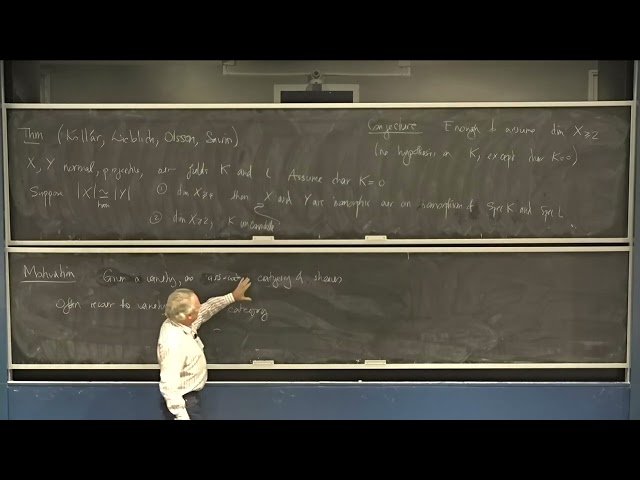 Thm (Kollár, Lieblich, Olsson, Sawin)
X, Y normal, projective, over fields K and L Assume char K = 0
Suppose |X| ≅ |Y|
homeo
① dim X ≥ 4 then X and Y are isomorphic over an isomorphism of Spec K and Spec L
② dim X ≥ 2, K uncountable
Conjecture Enough to assume dim X ≥ 2
(no hypothesis on K, except char K = 0)
Motivation Given a variety, associate category of sheaves
Often recover the variety category